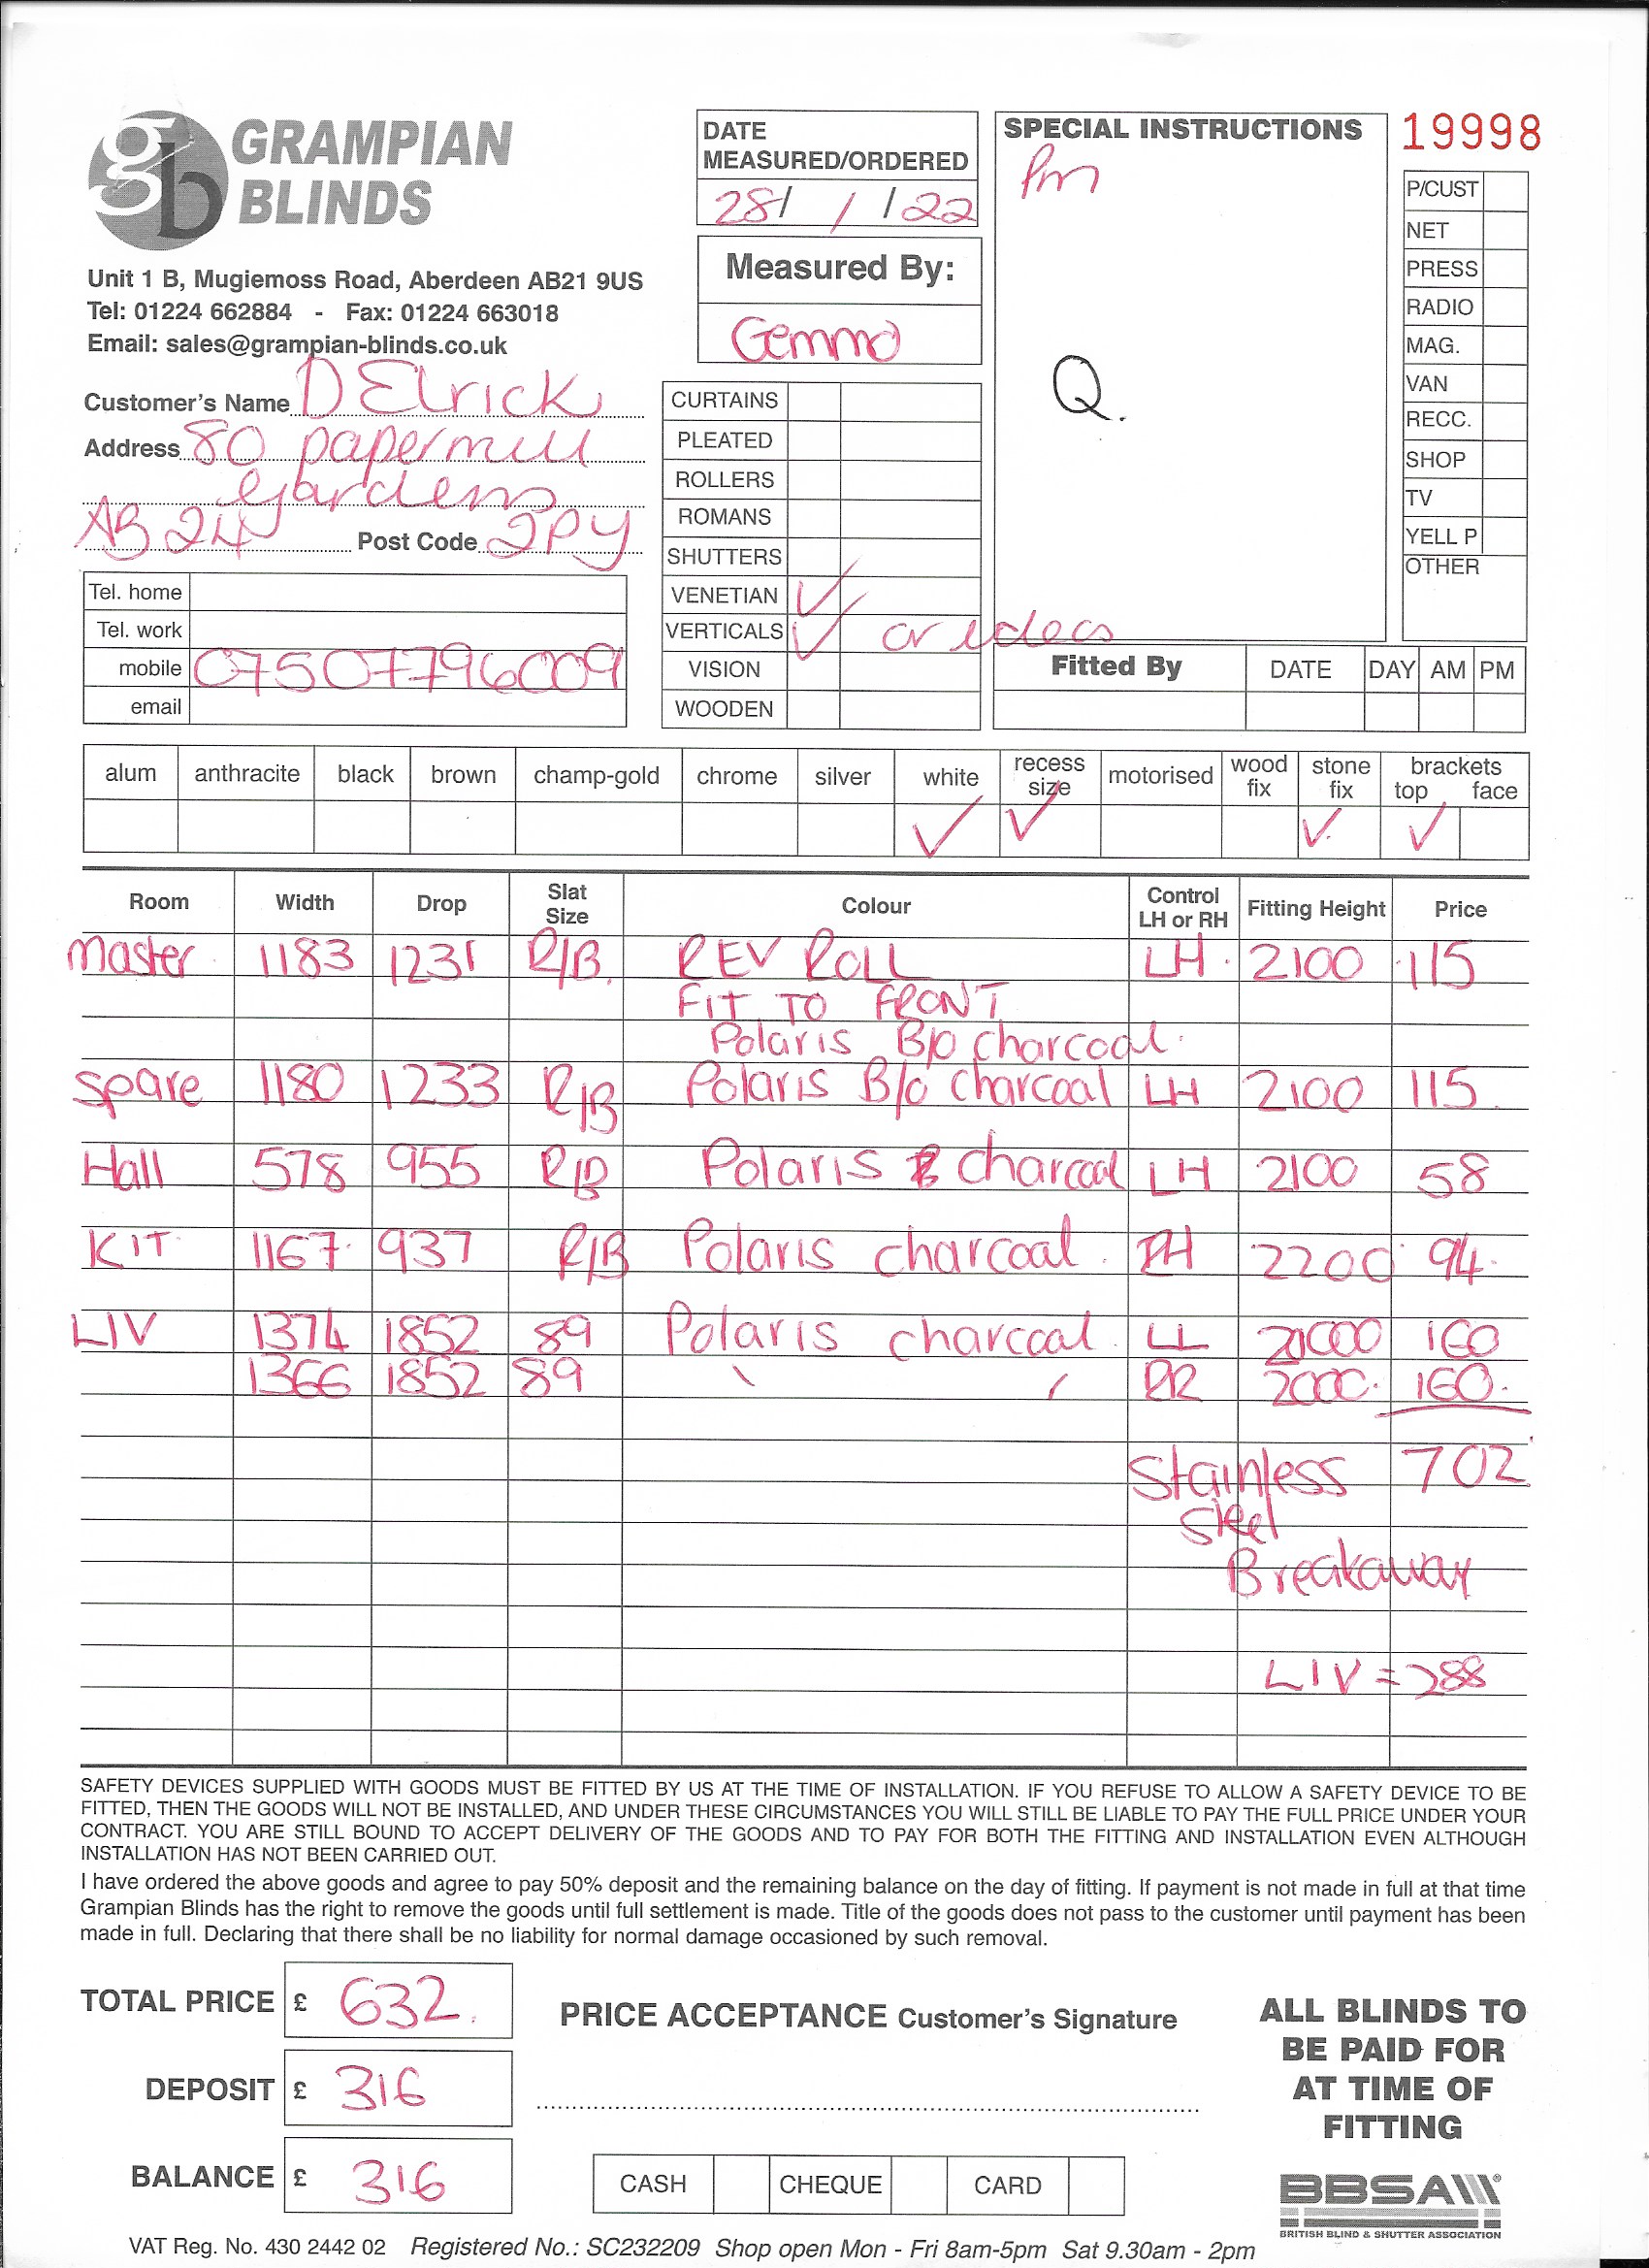 gb GRAMPIAN BLINDS
Unit 1 B, Mugiemoss Road, Aberdeen AB21 9US
Tel: 01224 662884 - Fax: 01224 663018
Email: sales@grampian-blinds.co.uk
Customer's Name D Elrick
Address 80 papermill
Gardens
AB24 Post Code 2PY
Tel. home
Tel. work
mobile 07507796009
email
DATE
MEASURED/ORDERED
28/ 1 /22
Measured By:
Gemma
CURTAINS
PLEATED
ROLLERS
ROMANS
SHUTTERS
VENETIAN ✓
VERTICALS ✓ or
VISION
WOODEN
SPECIAL INSTRUCTIONS
Pm
Q.
19998
P/CUST
NET
PRESS
RADIO
MAG.
VAN
RECC.
SHOP
TV
YELL P
OTHER
Fitted By DATE DAY AM PM
alum anthracite black brown champ-gold chrome silver white recess size motorised wood fix stone fix brackets top face
✓ ✓ ✓ ✓
Room Width Drop Slat Size Colour Control LH or RH Fitting Height Price
Master 1183 1231 R/B. REV ROLL LH. 2100 115
FIT TO FRONT
Polaris B/o charcoal.
Spare 1180 1233 R/B Polaris B/o charcoal LH 2100 115.
Hall 578 955 R/B Polaris charcoal LH 2100 58
KIT 1167 937 R/B Polaris charcoal. RH 2200 94.
LIV 1374 1852 89 Polaris charcoal. LL 2000 160
1366 1852 89 \ / RR 2000. 160.
Stainless 702
Steel
Breakaway
LIV = 288
SAFETY DEVICES SUPPLIED WITH GOODS MUST BE FITTED BY US AT THE TIME OF INSTALLATION. IF YOU REFUSE TO ALLOW A SAFETY DEVICE TO BE
FITTED, THEN THE GOODS WILL NOT BE INSTALLED, AND UNDER THESE CIRCUMSTANCES YOU WILL STILL BE LIABLE TO PAY THE FULL PRICE UNDER YOUR
CONTRACT. YOU ARE STILL BOUND TO ACCEPT DELIVERY OF THE GOODS AND TO PAY FOR BOTH THE FITTING AND INSTALLATION EVEN ALTHOUGH
INSTALLATION HAS NOT BEEN CARRIED OUT.
I have ordered the above goods and agree to pay 50% deposit and the remaining balance on the day of fitting. If payment is not made in full at that time
Grampian Blinds has the right to remove the goods until full settlement is made. Title of the goods does not pass to the customer until payment has been
made in full. Declaring that there shall be no liability for normal damage occasioned by such removal.
TOTAL PRICE £ 632.
DEPOSIT £ 316
BALANCE £ 316
PRICE ACCEPTANCE Customer's Signature
CASH CHEQUE CARD
ALL BLINDS TO
BE PAID FOR
AT TIME OF
FITTING
BBSA
BRITISH BLIND & SHUTTER ASSOCIATION
VAT Reg. No. 430 2442 02 Registered No.: SC232209 Shop open Mon - Fri 8am-5pm Sat 9.30am - 2pm